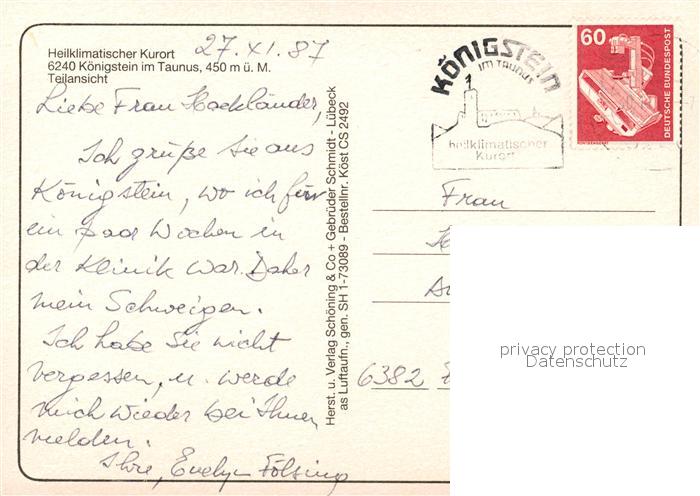 Heilklimatischer Kurort
6240 Königstein im Taunus, 450 m ü. M.
Teilansicht
27. XI. 87
Liebe Frau Hockländer,
Ich grüße Sie aus
Königstein, wo ich für
ein paar Wochen in
der Klinik war. Daher
mein Schweigen.
Ich habe Sie nicht
vergessen, u. werde
mich wieder bei Ihnen
melden.
Ihre, Evelyn Fölsing
Herst. u. Verlag Schöning & Co + Gebrüder Schmidt - Lübeck
as Luftaufn., gen. SH 1-73089 - Bestellnr. Köst CS 2492
KÖNIGSTEIN
IM TAUNUS
heilklimatischer
Kurort
60
DEUTSCHE BUNDESPOST
RÖNTGENGERÄT
Frau
6382
privacy protection
Datenschutz